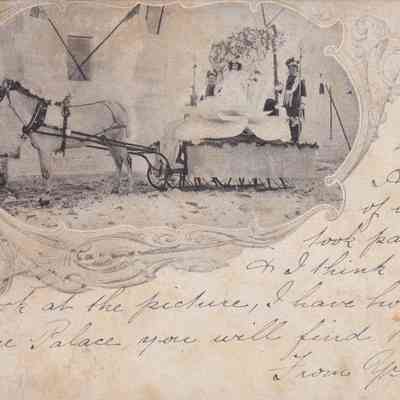 of
took pa
& I think
k at the picture, I have ho
e Palace you will find
From Yo